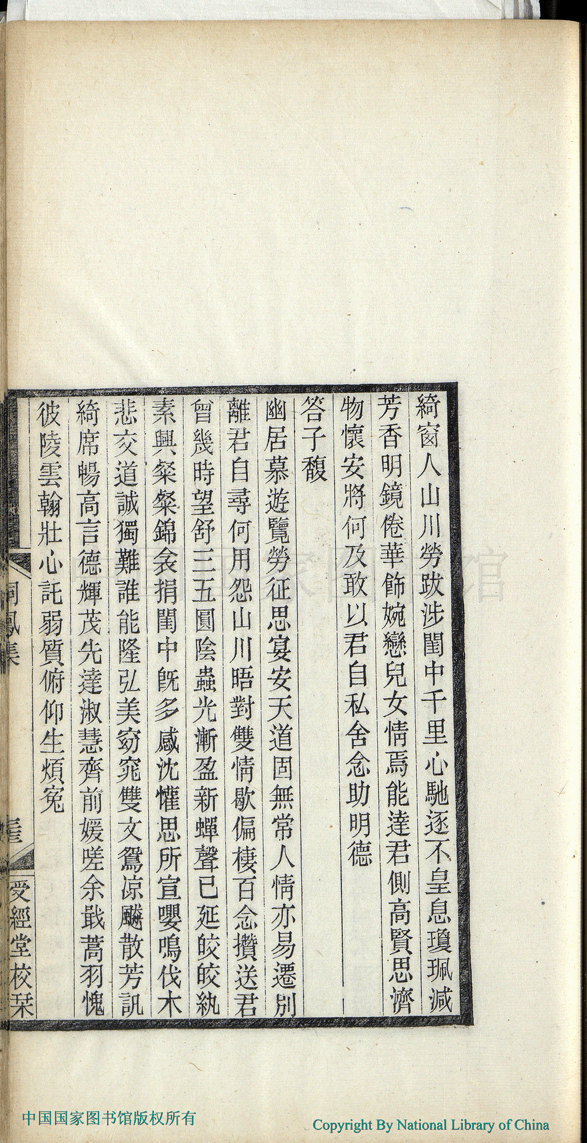 綺窗人山川勞跋涉閨中千里心馳逐不皇息瓊珮減
芳香明鏡倦華飾婉戀兒女情焉能達君側高賢思濟
物懷安將何及敢以君自私舍念助明德
答子馥
幽居慕遊覽勞征思宴安天道固無常人情亦易遷別
離君自尋何用怨山川晤對雙情歇偏棲百念攢送君
曾幾時望舒三五圓陰蟲光漸盈新蟬聲已延皎皎紈
素興粲粲錦衾捐閨中旣多感沈懽思所宣嚶鳴伐木
悲交道誠獨難誰能隆弘美窈窕雙文鴛涼飈散芳訊
綺席暢高言德輝茂先達淑慧齊前媛嗟余戢蒿羽愧
彼陵雲翰壯心託弱質俯仰生煩冤
鳳集
受經堂校栞
中国国家图书馆版权所有
Copyright By National Library of China